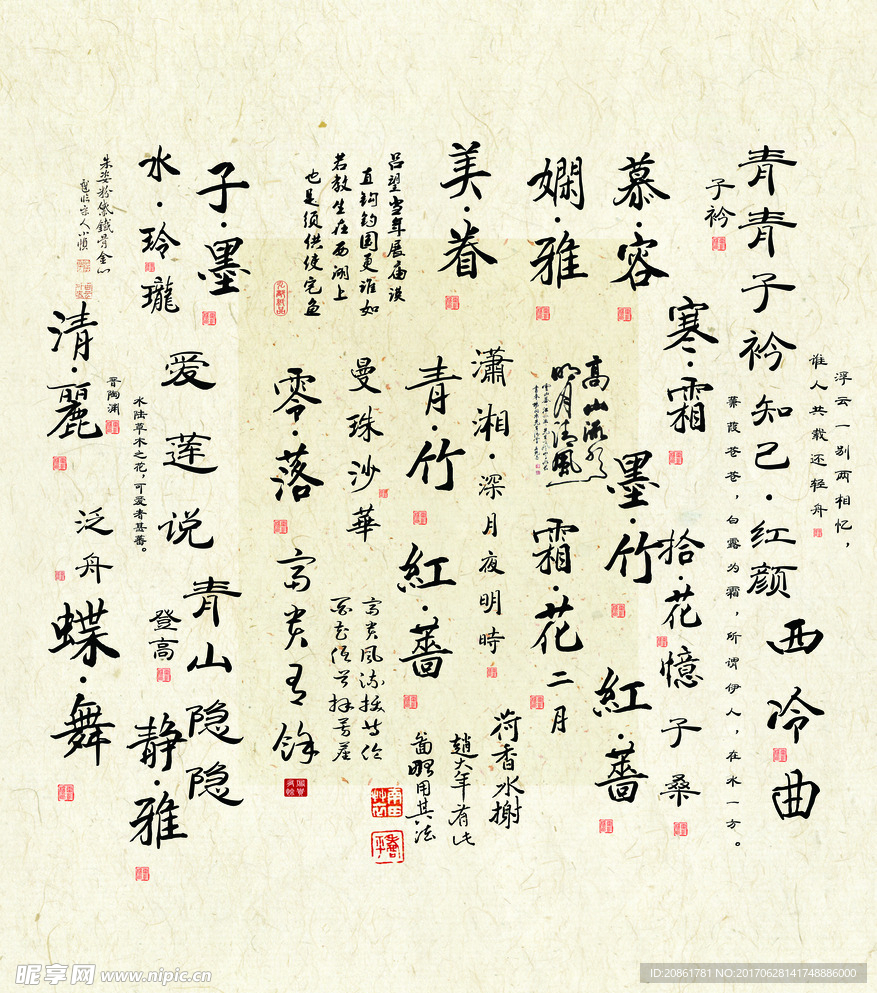 浮云一别两相忆，
谁人共载还轻舟
青青子衿知己·红颜
子衿
蒹葭苍苍，白露为霜，所谓伊人，在水一方。
西冷曲
慕·容
寒·霜
墨·竹
拾·花
憶子桑
紅·薔
嫻·雅
高山流水
明月清風
霜·花二月
美·眷
瀟湘·深月夜明時
青·竹
紅·薔
荷香水榭
趙大年有此
畵明用其法
吕望当年展庙谟
直钩钓国更谁如
若教生在西湖上
也是须供使宅鱼
曼珠沙華
零·落
富贵有余
子·墨
水·玲瓏
朱姿粉黛鐵骨金心
爱莲说
晋陶渊
水陆草木之花，可爱者甚蕃。
清·麗
泛舟
青山隐隐
登高
蝶·舞
静·雅
昵享网 www.nipic.cn
ID:20861781 NO:20170628141748886000